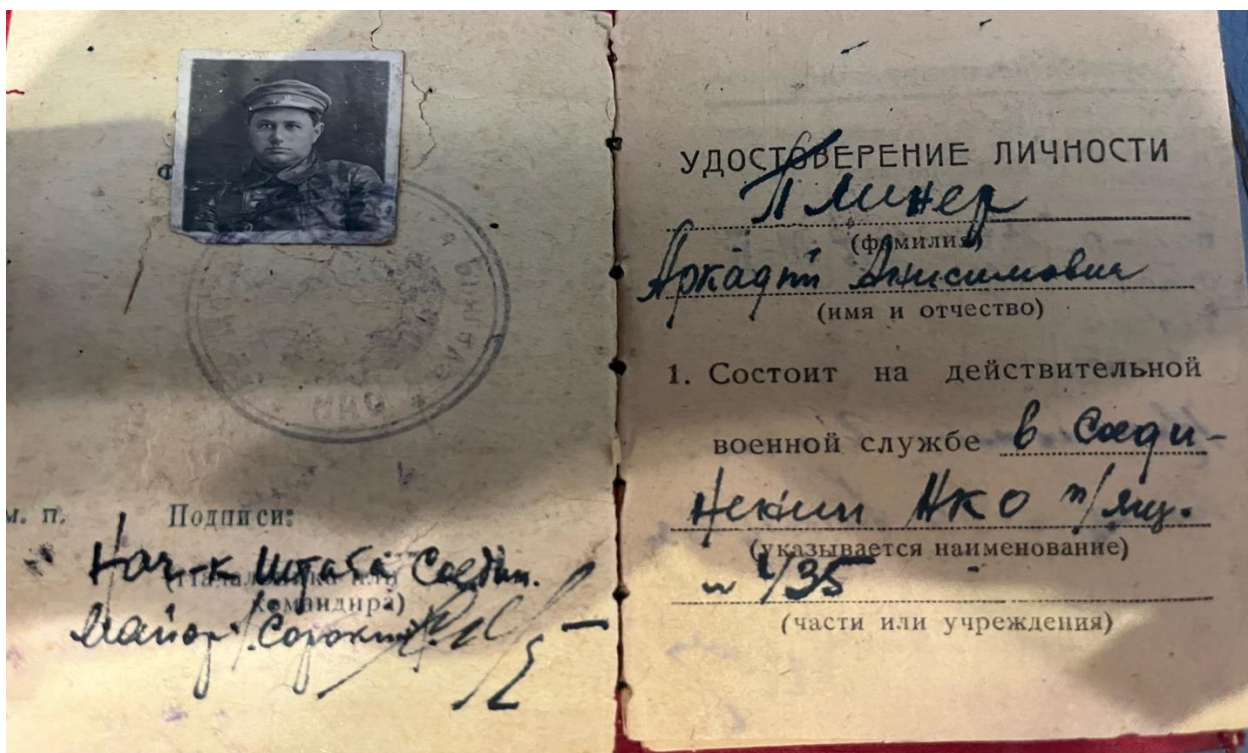 м. п. Подписи:
Нач-к Штаба Соедин.
(Начальника или
командира)
Майор /Сорокин/
УДОСТОВЕРЕНИЕ ЛИЧНОСТИ
Плинер
(фамилия)
Аркадий Анисимович
(имя и отчество)
1. Состоит на действительной
военной службе в Соеди-
нении НКО п/ящ.
(указывается наименование)
(части или учреждения)